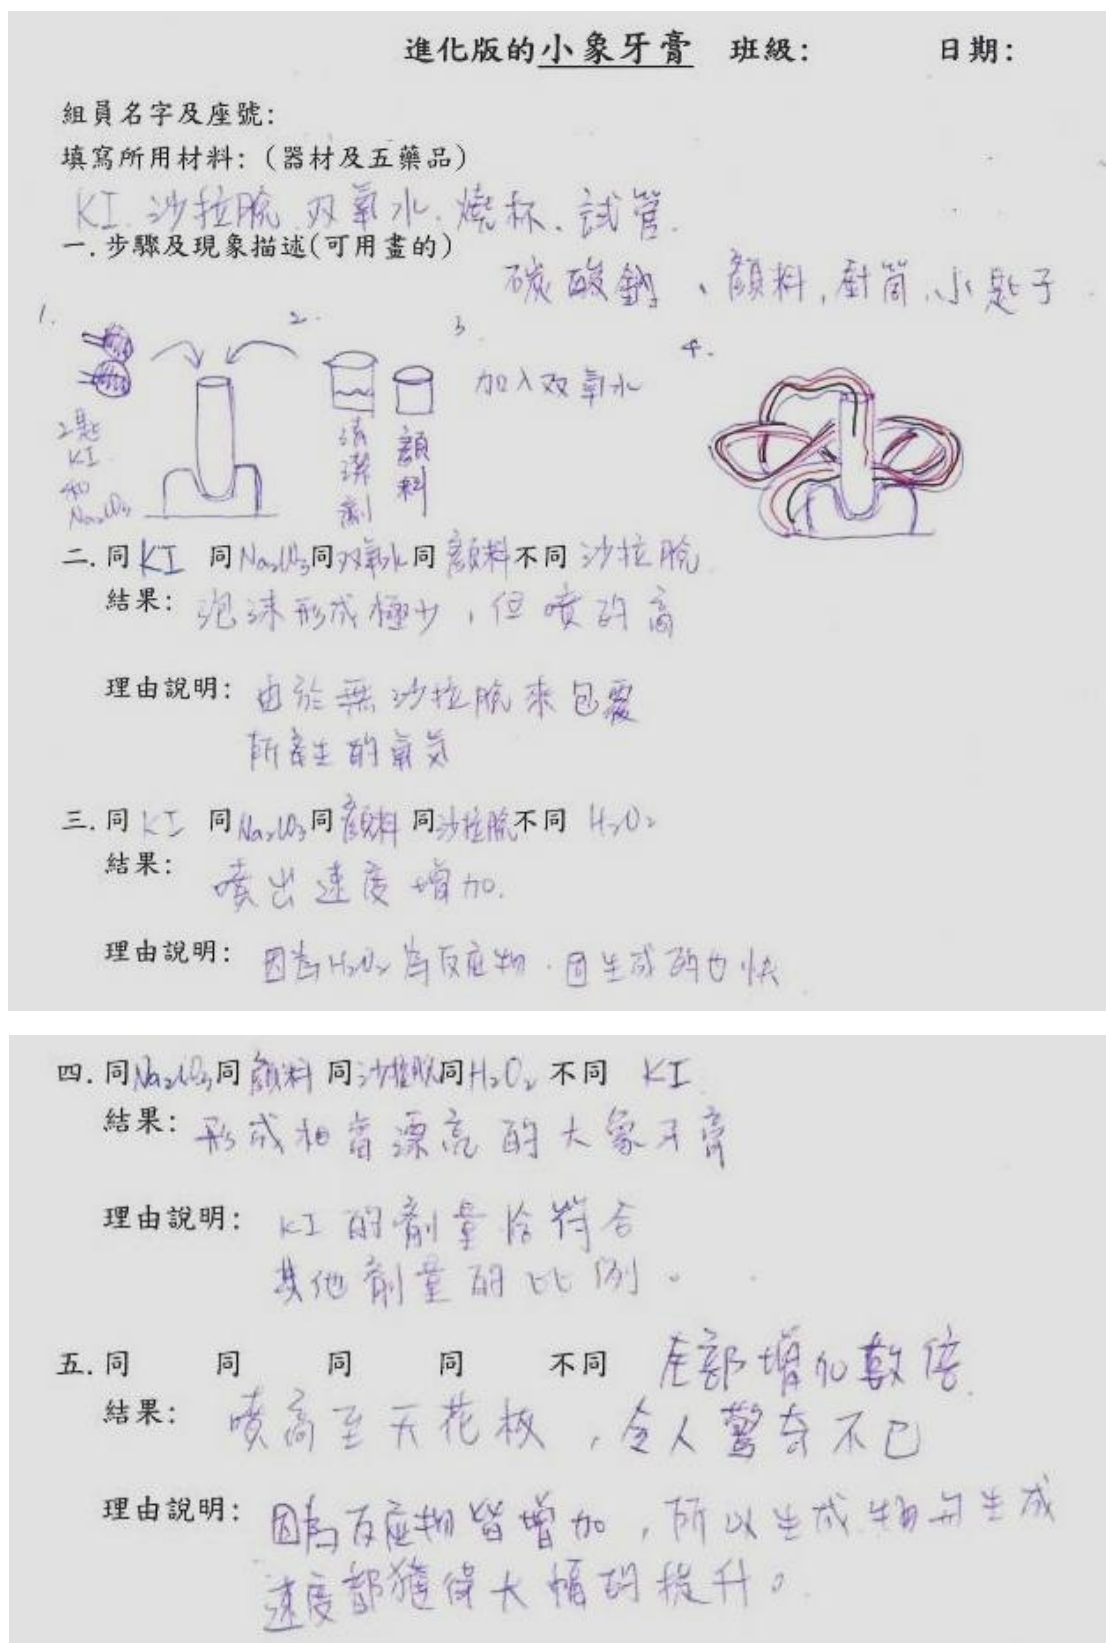 進化版的小象牙膏 班級: 日期:
組員名字及座號:
填寫所用材料:(器材及五藥品)
KI、沙拉脫、双氧水、燒杯、試管.
碳酸鈉、顏料,針筒、小匙子.
一.步驟及現象描述(可用畫的)
1.
2匙
KI
和
Na₂CO₃
2.
清潔劑
顏料
3.
加入双氧水
4.
二.同KI 同Na₂CO₃同双氧水同顏料不同沙拉脫
結果: 泡沫形成極少,但噴的高
理由說明: 由於無沙拉脫來包覆
所產生的氧气
三.同KI 同Na₂CO₃同顏料同沙拉脫不同 H₂O₂
結果: 噴出速度增加.
理由說明: 因為H₂O₂為反應物.因生成的也快
四.同Na₂CO₃同顏料同沙拉脫同H₂O₂不同 KI
結果: 形成相當漂亮的大象牙膏
理由說明: KI的劑量恰符合
其他劑量的比例。
五.同 同 同 同 不同 全部增加數倍
結果: 噴高至天花板,令人驚奇不已
理由說明: 因為反應物皆增加,所以生成物与生成
速度都獲得大幅的提升。